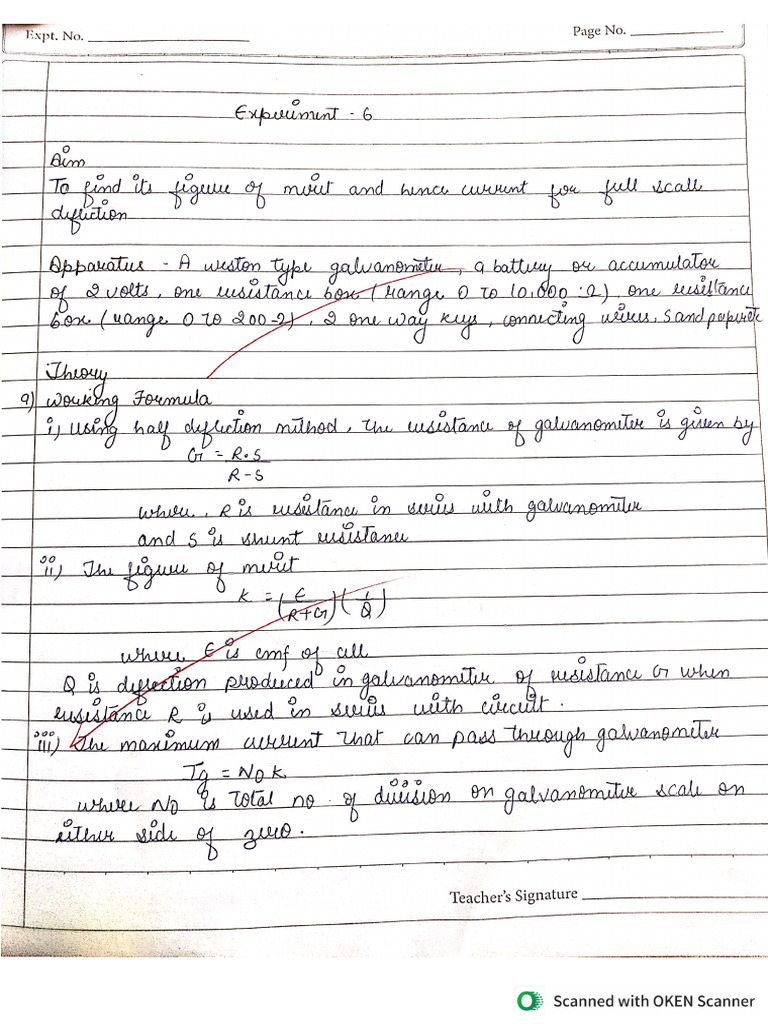 Expt. No.
Page No.
Experiment - 6
Aim
To find its figure of merit and hence current for full scale
deflection
Apparatus - A weston type galvanometer, a battery or accumulator
of 2 volts, one resistance box (range 0 to 10,000 Ω), one resistance
box (range 0 to 200 Ω), 2 one way keys, connecting wires, sand
Theory
a) Working Formula
i) Using half deflection method, the resistance of galvanometer is given by
G = R.S
R-S
where, R is resistance in series with galvanometer
and S is shunt resistance
ii) The figure of merit
K = (E/R+G)(1/Q)
where E is emf of cell
Q is deflection produced in galvanometer of resistance G when
resistance R is used in series with circuit.
iii) The maximum current that can pass through galvanometer
Ig = No K
where No is total no. of division on galvanometer scale on
either side of zero.
Teacher's Signature
Scanned with OKEN Scanner